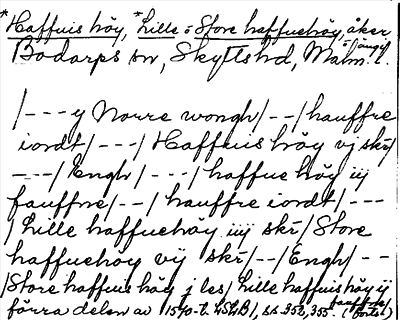 *Haffuis höy, *Lille o Store haffuehöy, åker
o ängsj
Bodarps sn, Skytts hd, Malm. l.
/---y Norre wongh/--/hauffre
iordt/---/ Haffuis höy vj skr/
---/Engh/---/haffue höy iij
fauffne/--/hauffre iordt/---
/Lille haffuehöy iiij skr/Store
haffuehöy vij skr/--/Engh/--
/Store haffuis höy j les/Lille haffuishöy ij
förra delen av 1570-t. 454B/, ss 352, 355.